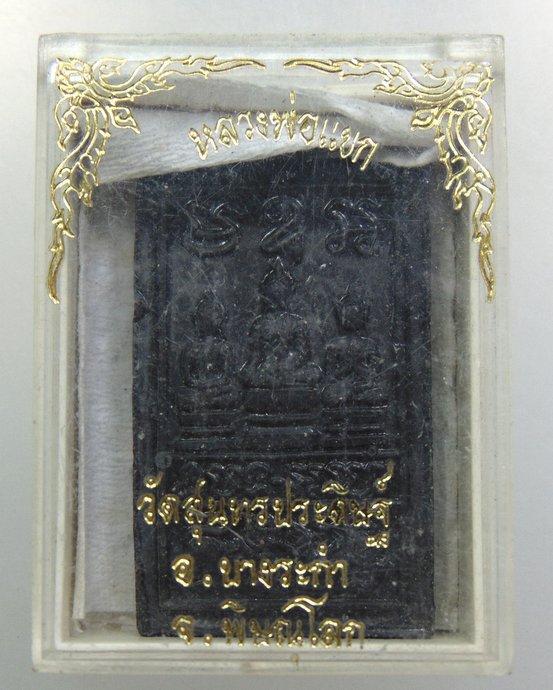 หลวงพ่อแขก
วัดสุนทรประดิษฐ์
อ.บางระกำ
จ.พิษณุโลก